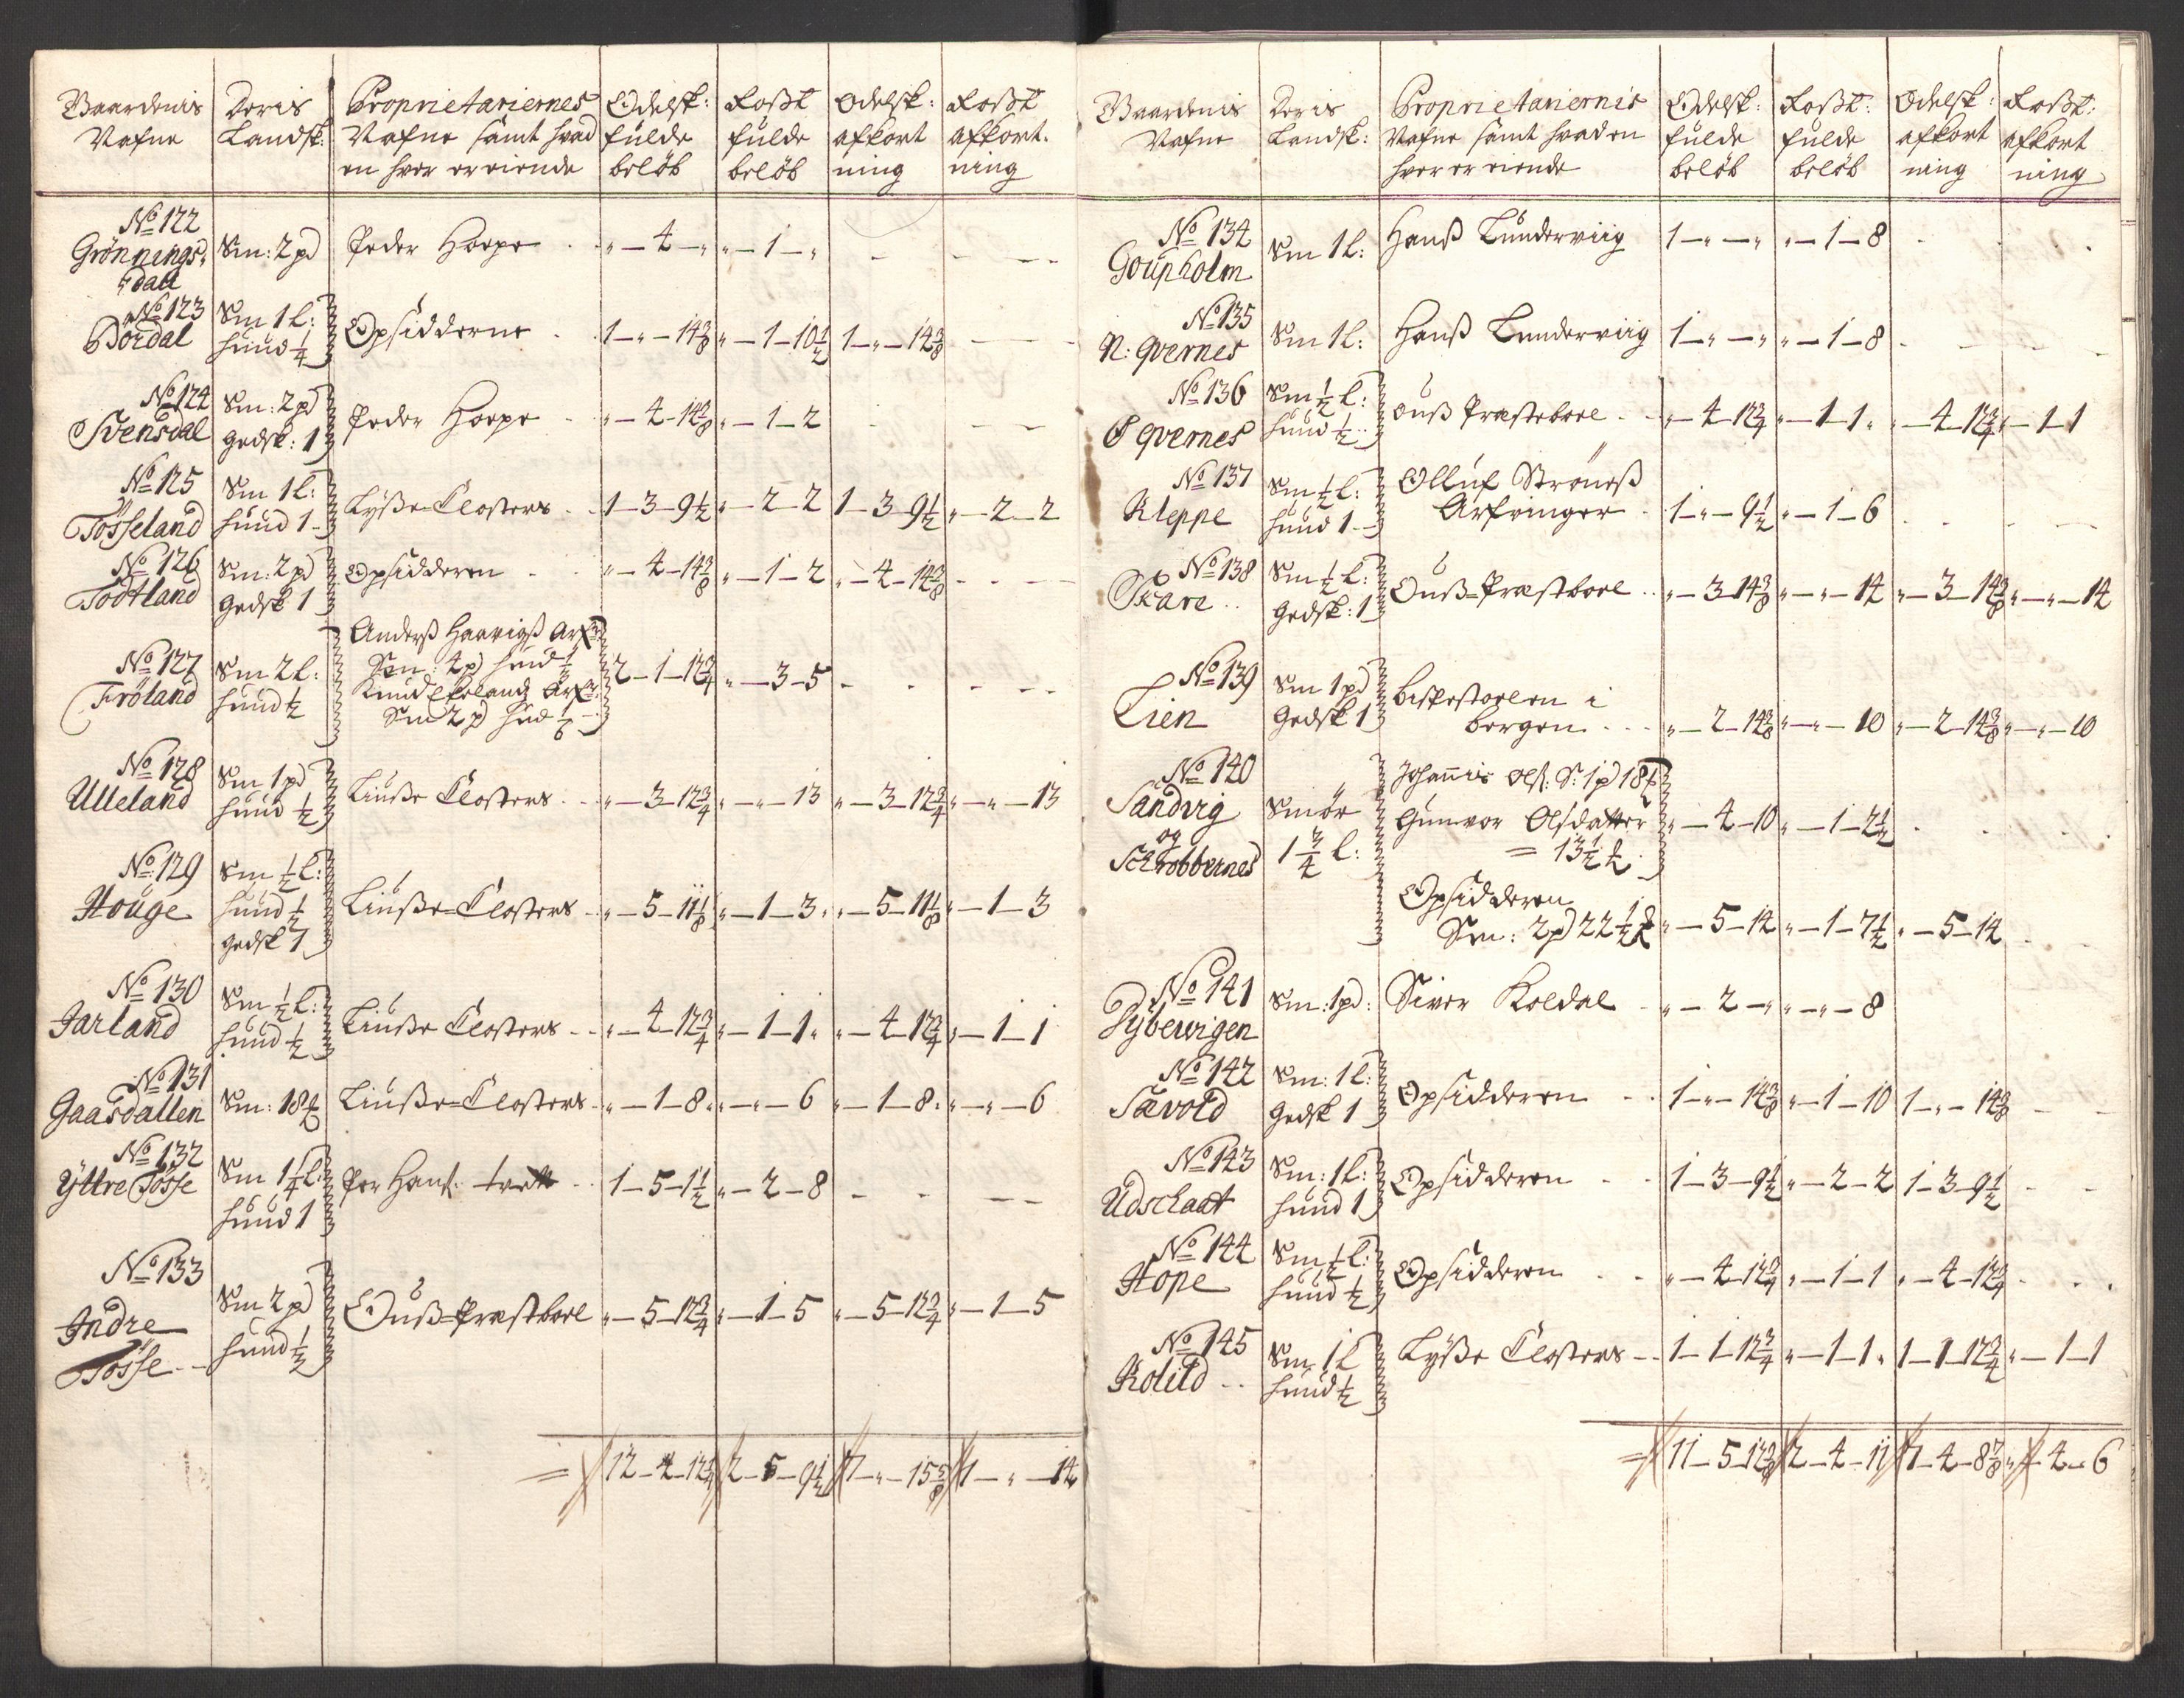 Gaardenis Nafne | Deris Landsk: | Proprietariernes Nafne samt hvad en hver er eiende | Odelsk: fulde beløb | Roßt fulde beløb | Odelsk: afkort ning | Roßt afkort. ning
No 122 Grönnings, dall | Sm: 2 pd | Peder Hope | " — 4 — " | " — 1 — "
No 123 Dördal | Sm 1 l: hund 1/4 | Opsidderne | 1 — " — 14 3/8 | " — 1 — 10 1/2 | 1 — " — 14 3/8
No 124 Svensdal | Sm: 2 pd Gedsk: 1 | Peder Hope | " — 4 — 14 3/8 | " — 1 — 2
No 125 Tösseland | Sm 1 l: hund 1 | Lyße Closters | 1 — 3 — 9 1/2 | " — 2 — 2 | 1 — 3 — 9 1/2 | " — 2 — 2
No 126 Tödtland | Sm: 2 pd Gedsk 1 | Opsidderen | " — 4 — 14 3/8 | " — 1 — 2 | " — 4 — 14 3/8
No 127 Fröland | Sm 2 l: hund 1/2 | Anderß Haavigß Arf: Sm: 4 pd hud 1/3 Knud Echelandß Arf: Sm 2 pd hud 1/6 | 2 — 1 — 12 3/4 | " — 3 — 5
No 128 Ulleland | Sm 1 pd hund 1/2 | Liuße Closters | " — 3 — 12 3/4 | " — " — 13 | " — 3 — 12 3/4 | " — " — 13
No 129 Houge | Sm 1/2 l: hund 1/2 gedsk 1 | Liuße Closters | " — 5 — 11 1/8 | " — 1 — 3 | " — 5 — 11 1/8 | " — 1 — 3
No 130 Jarland | Sm 1/2 l: hund 1/2 | Liuße Closters | " — 4 — 12 3/4 | " — 1 — 1 | " — 4 — 12 3/4 | " — 1 — 1
No 131 Gaasdallen | Sm: 18 ℔ | Liuße Closters | " — 1 — 8 | " — " — 6 | " — 1 — 8 | " — " — 6
No 132 Yttre Tösse | Sm 1 1/4 l: hund 1 | Per Hans: | 1 — 5 — 1 1/2 | " — 2 — 8
No 133 Indre Tösse | Sm 2 pd hund 1/2 | Ouß Præstbole | " — 5 — 12 3/4 | " — 1 — 5 | " — 5 — 12 3/4 | " — 1 — 5
= 12 — 4 — 12 1/4 | 2 — 5 — 9 1/2 | 7 — " — 15 5/8 | 1 — " — 14
Gaardenis Nafne | Deris Landsk: | Proprietariernis Nafne samt hvad en hver er eiende | Odelsk: fulde beløb | Roßt: fulde beløb | Odelsk: afkort ning | Roßt: afkort ning
No 134 Goupholm | Sm 1 l: | Hanß Lunderviig | 1 — " — " | " — 1 — 8
No 135 N: Qvernes | Sm 1 l: | Hanß Lunderviig | 1 — " — " | " — 1 — 8
No 136 S Qvernes | Sm 1/2 l: hund 1/2 | Ouß Præstebole | " — 4 — 12 3/4 | " — 1 — 1 | " — 4 — 12 3/4 | " — 1 — 1
No 137 Kleppe | Sm 1/2 l: hund 1 | Olluf Ströneß Arfvinger | 1 — " — 9 1/2 | " — 1 — 6
No 138 Skare | Sm 1/2 l: Gedsk: 1 | Ouß Præstbole | " — 3 — 14 3/8 | " — " — 14 | " — 3 — 14 3/8 | " — " — 14
No 139 Lien | Sm 1 pd Gedsk 1 | Bispestoelen i Bergen | " — 2 — 14 3/8 | " — " — 10 | " — 2 — 14 3/8 | " — " — 10
No 140 Sandvig og Schrobbernes | Smör 1 3/4 l: | Johannis Ols: S: 1 pd 18 ℔ Gunvor Olsdatter = 13 1/2 ℔ | " — 4 — 10 | " — 1 — 2 1/2
Opsidderen Sm: 2 pd 22 1/2 ℔ | " — 5 — 14 | " — 1 — 7 1/2 | " — 5 — 14
No 141 Dybevigen | Sm: 1 pd: | Siver Koldal | " — 2 — " | " — " — 8
No 142 Sævold | Sm: 1 l: Gedsk 1 | Opsidderen | 1 — " — 14 3/8 | " — 1 — 10 | 1 — " — 14 3/8
No 143 Udschaat | Sm: 1 l: hund 1 | Opsidderen | 1 — 3 — 9 1/2 | " — 2 — 2 | 1 — 3 — 9 1/2
No 144 Hope | Sm 1/2 l: hund 1/2 | Opsidderen | " — 4 — 12 3/4 | " — 1 — 1 | " — 4 — 12 3/4
No 145 Kolild | Sm 1 l hund 1/2 | Lyße Closters | 1 — 1 — 12 3/4 | " — 1 — 1 | 1 — 1 — 12 3/4 | " — 1 — 1
= 11 — 5 — 12 3/8 | 2 — 4 — 11 | 7 — 4 — 8 7/8 | " — 4 — 6